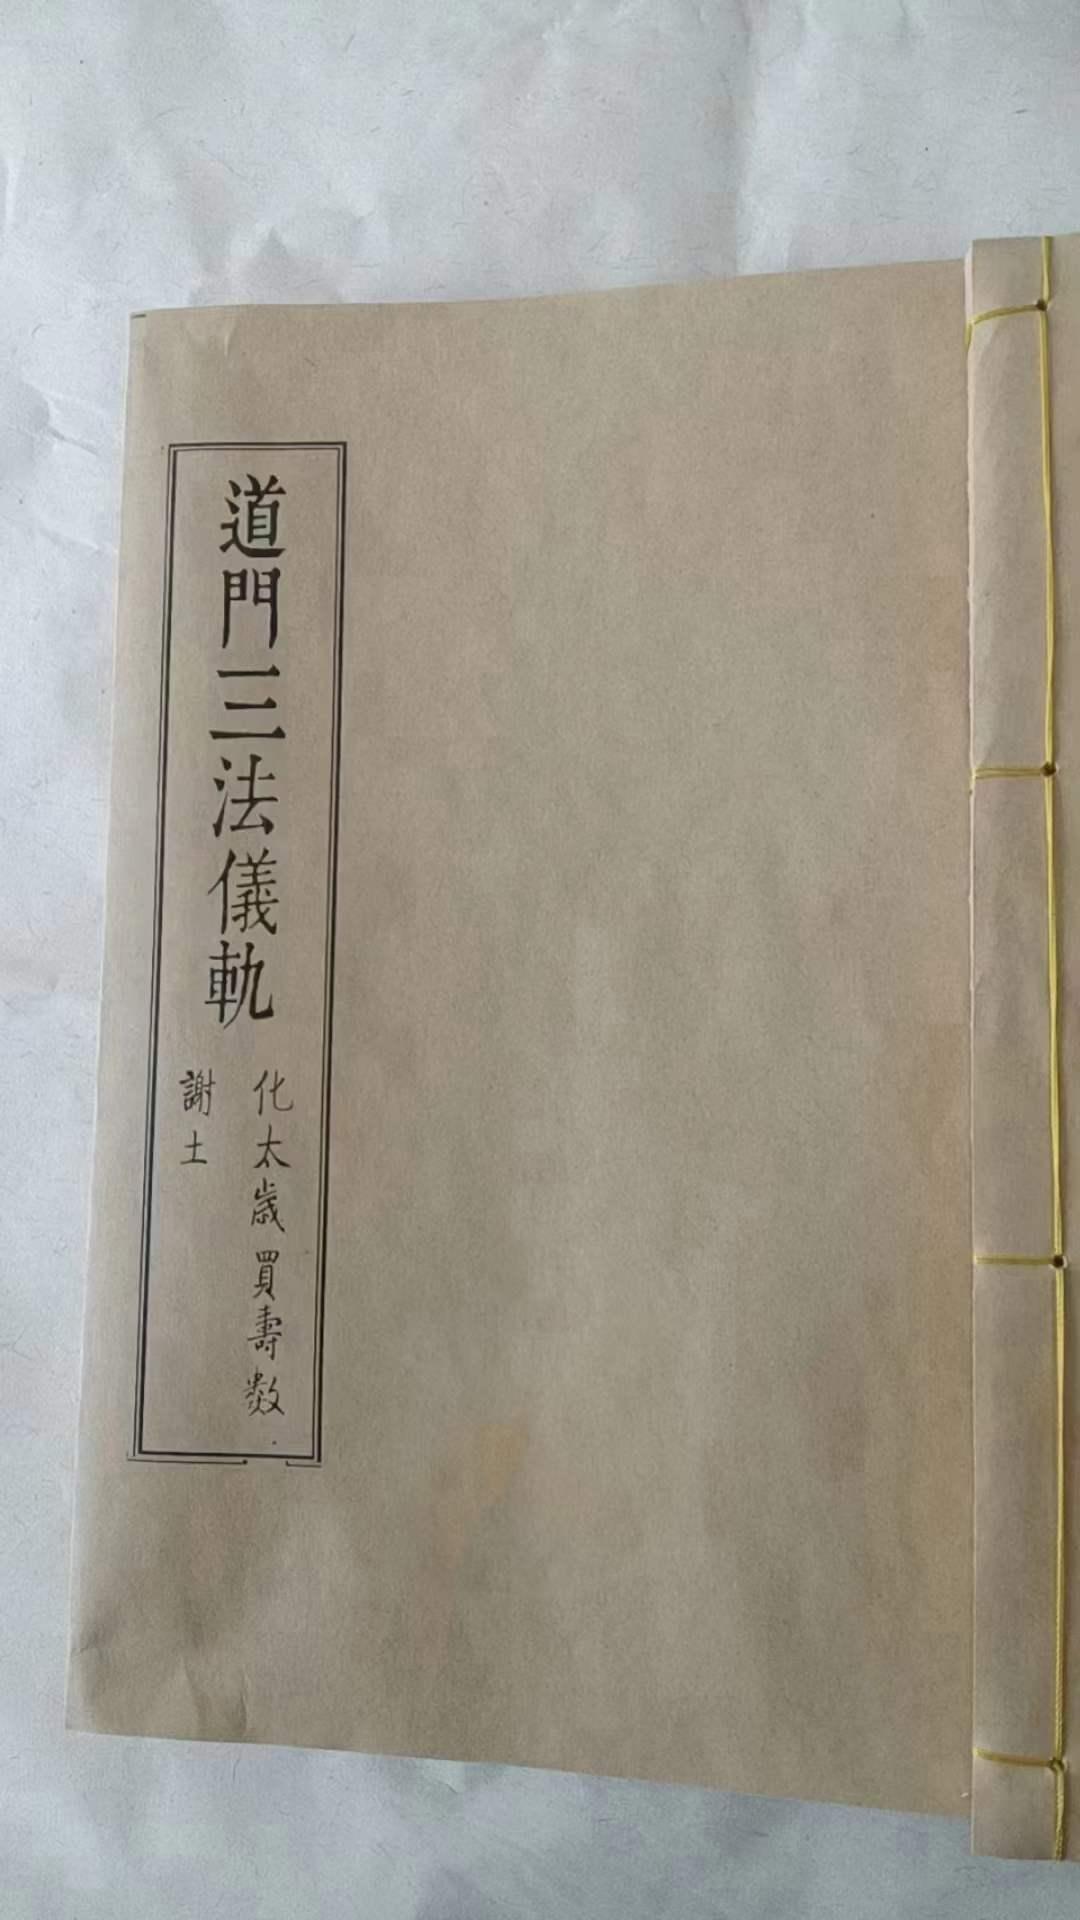 道門三法儀軌
化太歲買壽数
謝土